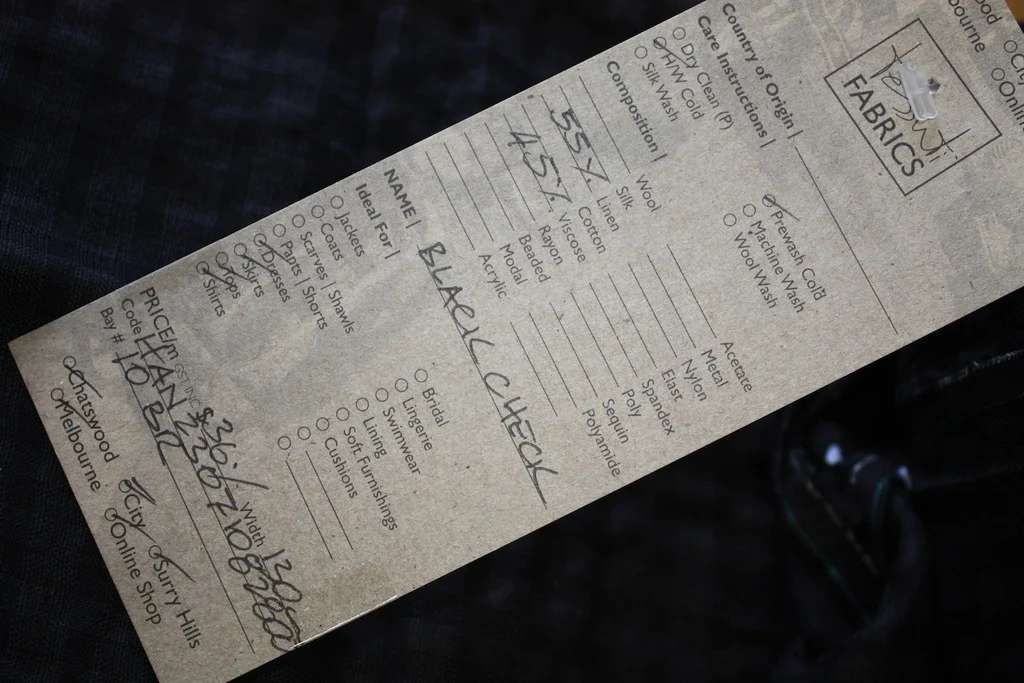 Tessuti
FABRICS
Country of Origin |
Care Instructions |
Dry Clean (P)
H/W Cold
Silk Wash
Prewash Cold
Machine Wash
Wool Wash
Composition |
Wool
Silk
55% Linen
45% Cotton
Viscose
Rayon
Beaded
Modal
Acrylic
Acetate
Metal
Nylon
Elast
Spandex
Poly
Sequin
Polyamide
NAME | BLACK CHECK
Ideal For |
Jackets
Coats
Scarves | Shawls
Pants | Shorts
Dresses
Skirts
Tops
Shirts
Bridal
Lingerie
Swimwear
Lining
Soft Furnishings
Cushions
PRICE/m GST INC $36/ Width
Code
Bay # 10 BR
Chatswood
Melbourne
City
Surry Hills
Online Shop